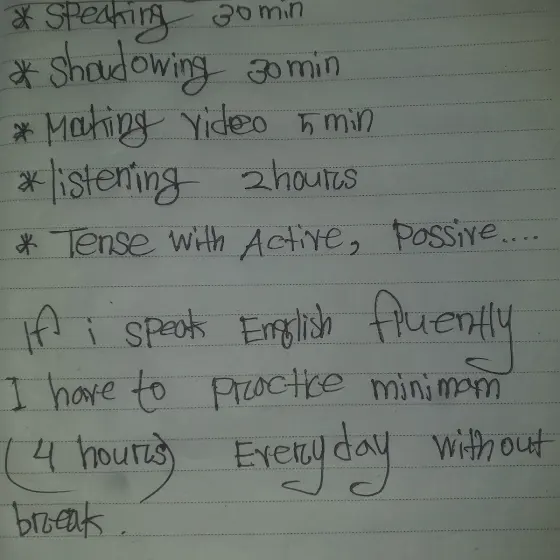 * Speaking 30 min
* Shadowing 30 min
* Making video 5 min
* listening 2 hours
* Tense with Active, Passive....
If i speak English fluently
I have to practice minimam
(4 hours) Everyday without
break.